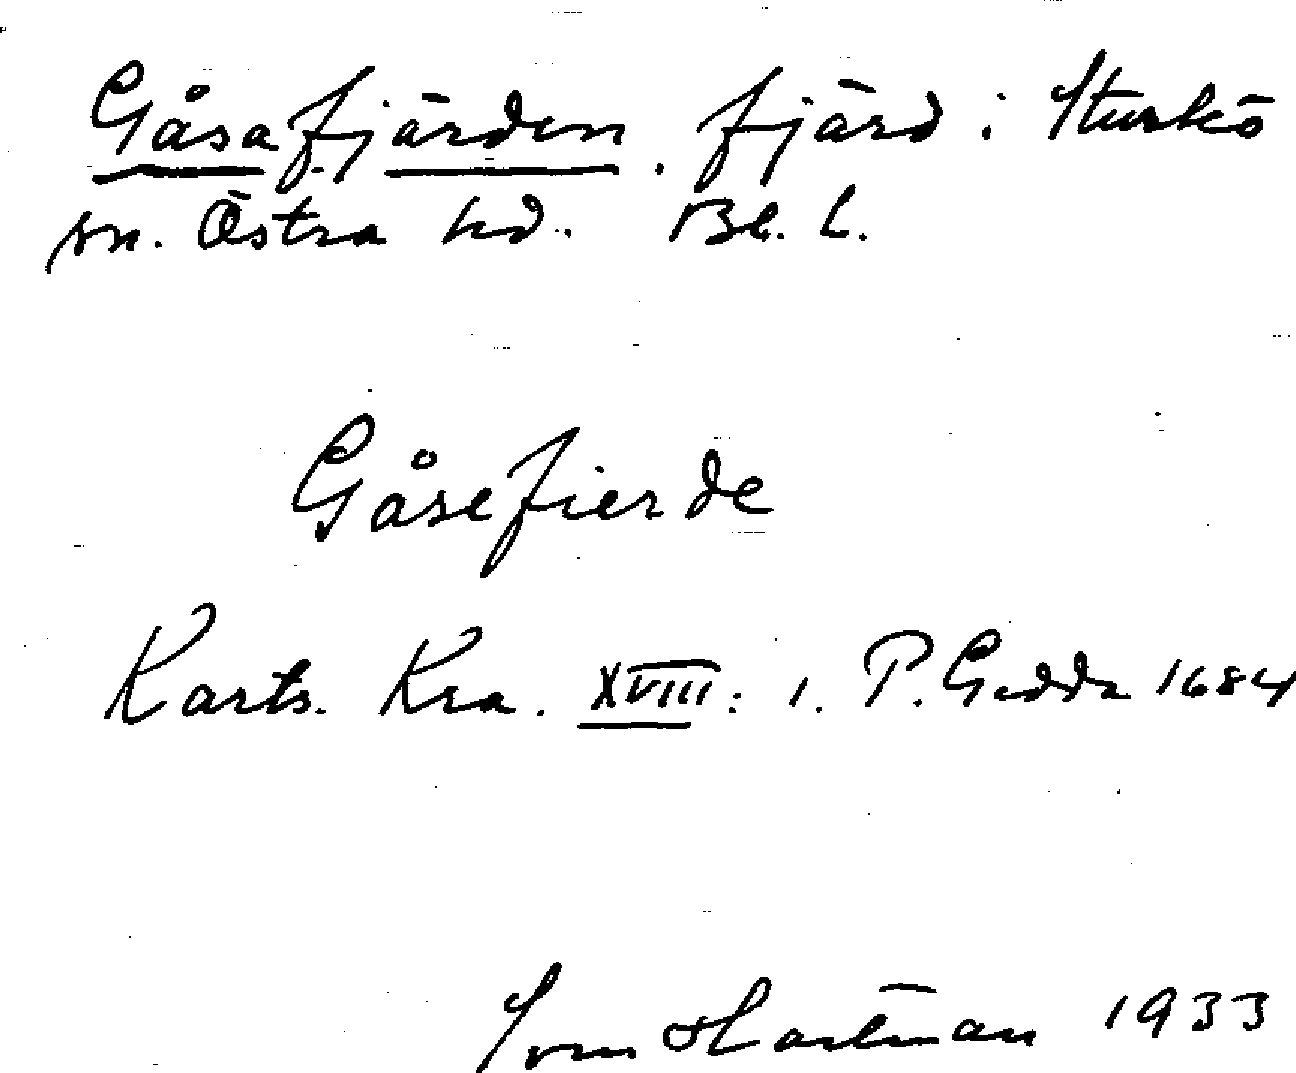 Gåsafjärden. fjärd i Sturkö
sn. Östra hd. Bl. l.
Gåsefierde
Karts. Kra. XVIII: 1. P. Gedda 1684
Sven Hartman 1933